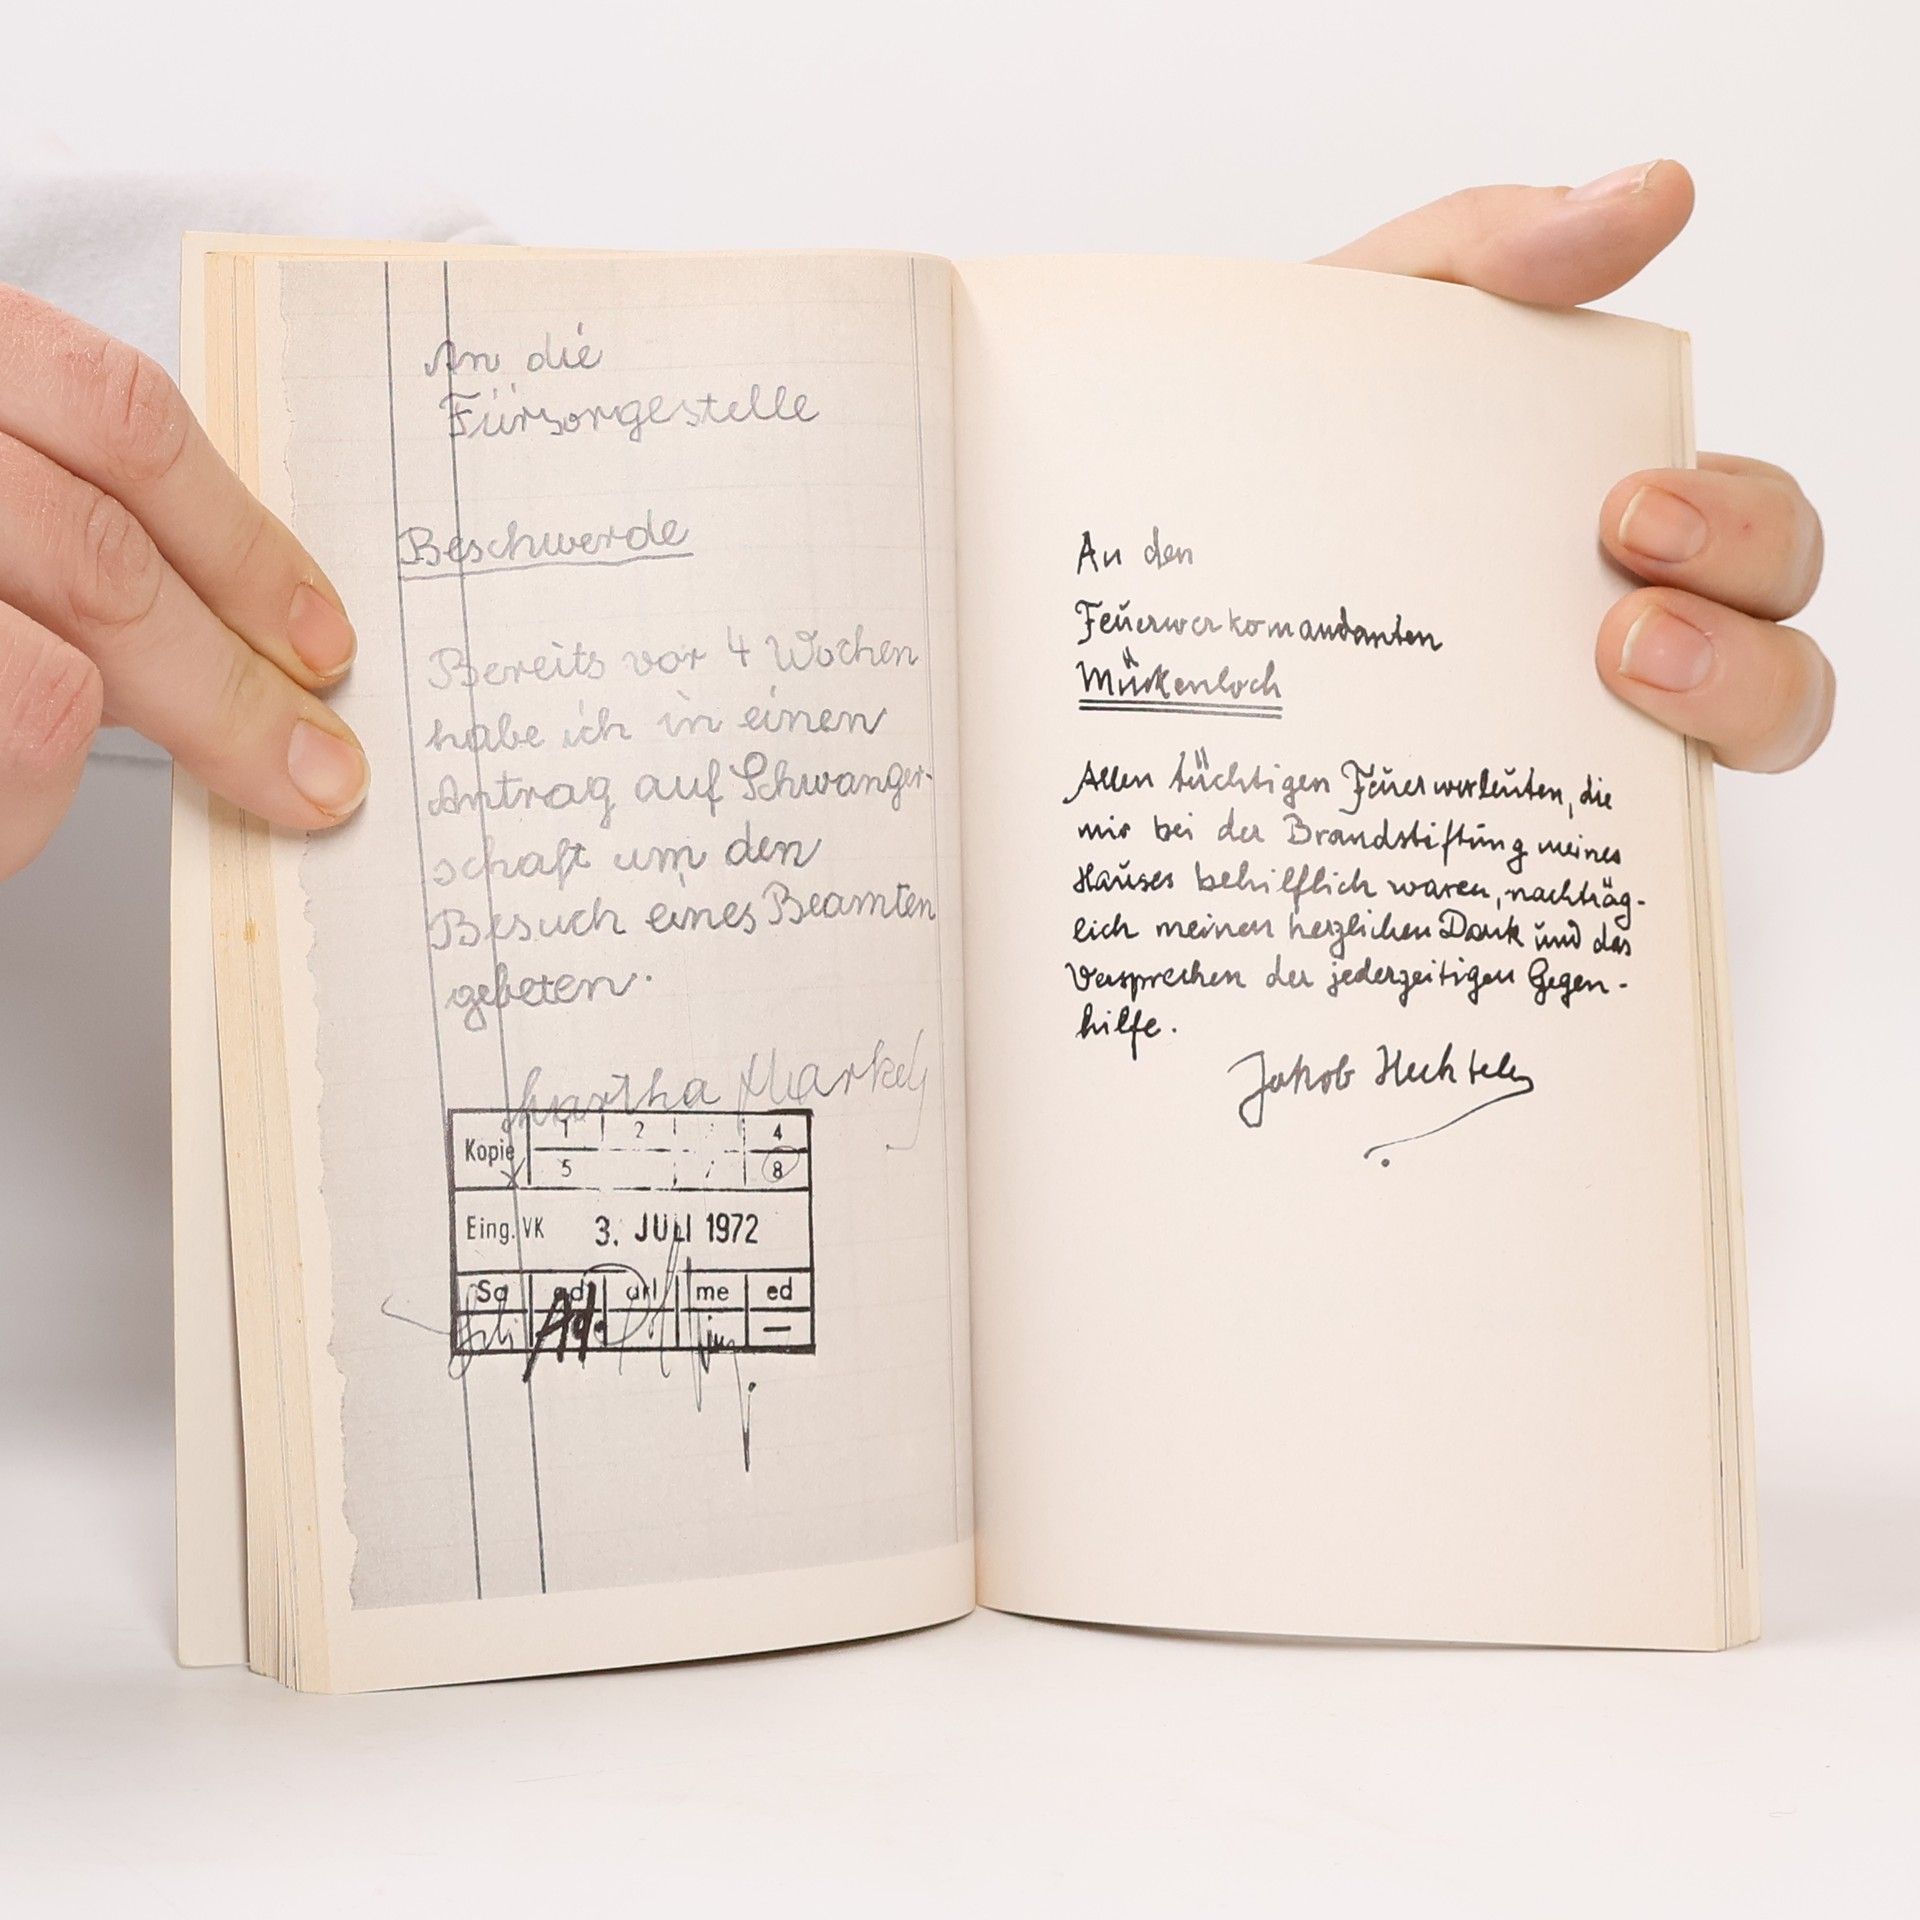 An die
Fürsorgestelle
Beschwerde
Bereits vor 4 Wochen
habe ich in einen
Antrag auf Schwanger-
schaft um den
Besuch eines Beamten
gebeten.
Martha
Kopie 1 2 4
5 8
Eing. VK 3. JULI 1972
Sa ad arl me ed
An den
Feuerwerkomandanten
Mükenloch
Allen tüchtigen Feuerwerleuten, die
mir bei der Brandstiftung meines
Hauses behilflich waren, nachträg-
lich meinen herzlichen Dank und das
Versprechen der jederzeitigen Gegen-
hilfe.
Jakob